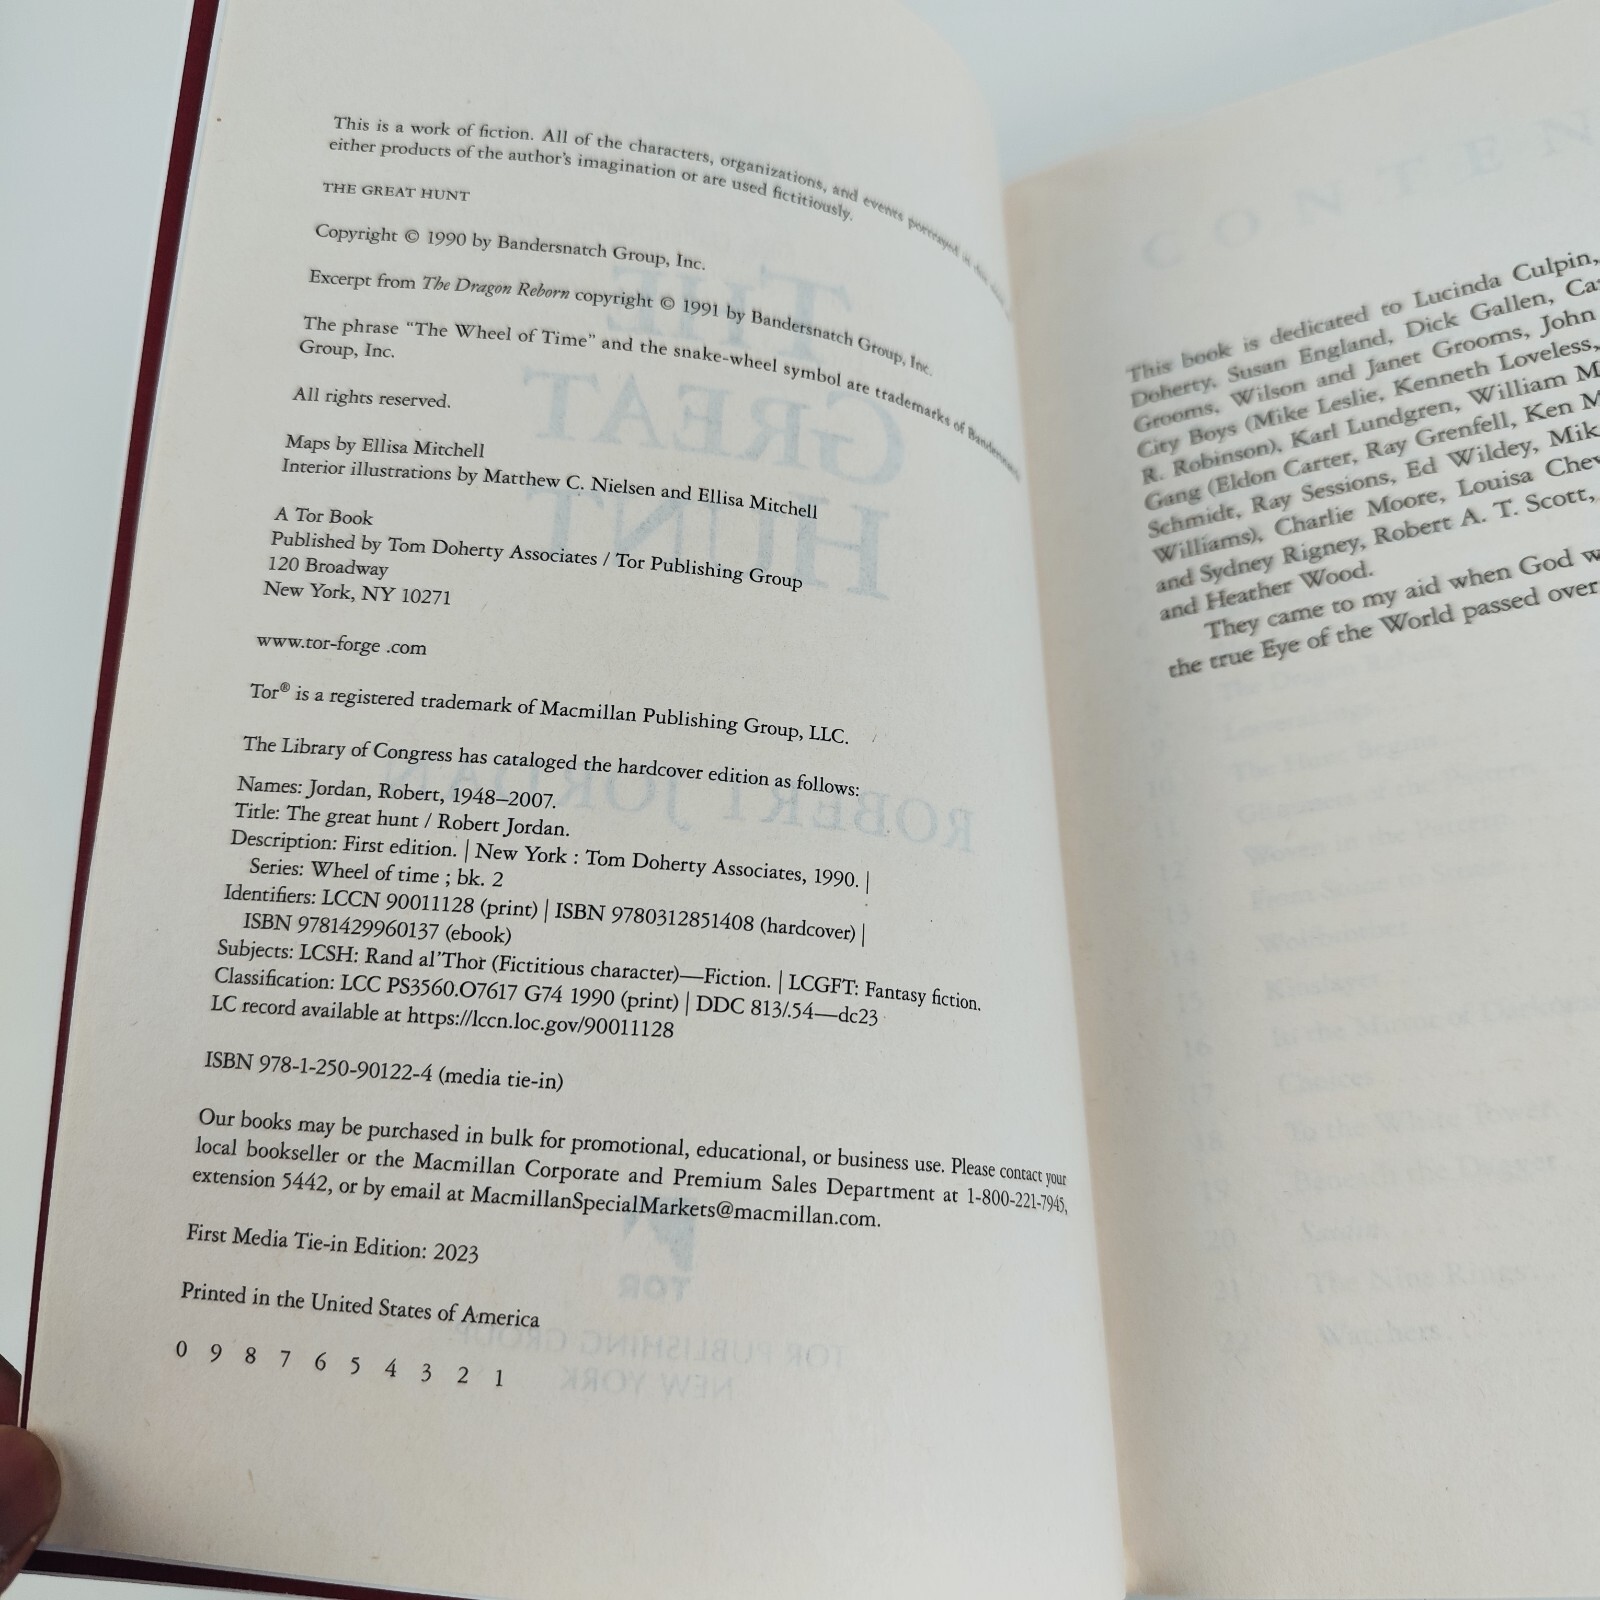 This is a work of fiction. All of the characters, organizations, and events portrayed in this
either products of the author's imagination or are used fictitiously.
THE GREAT HUNT
Copyright © 1990 by Bandersnatch Group, Inc.
Excerpt from The Dragon Reborn copyright © 1991 by Bandersnatch Group, Inc.
The phrase “The Wheel of Time” and the snake-wheel symbol are trademarks of Bandersnatch
Group, Inc.
All rights reserved.
Maps by Ellisa Mitchell
Interior illustrations by Matthew C. Nielsen and Ellisa Mitchell
A Tor Book
Published by Tom Doherty Associates / Tor Publishing Group
120 Broadway
New York, NY 10271
www.tor-forge .com
Tor® is a registered trademark of Macmillan Publishing Group, LLC.
The Library of Congress has cataloged the hardcover edition as follows:
Names: Jordan, Robert, 1948–2007.
Title: The great hunt / Robert Jordan.
Description: First edition. | New York : Tom Doherty Associates, 1990. |
Series: Wheel of time ; bk. 2
Identifiers: LCCN 90011128 (print) | ISBN 9780312851408 (hardcover) |
ISBN 9781429960137 (ebook)
Subjects: LCSH: Rand al'Thor (Fictitious character)—Fiction. | LCGFT: Fantasy fiction.
Classification: LCC PS3560.O7617 G74 1990 (print) | DDC 813/.54—dc23
LC record available at https://lccn.loc.gov/90011128
ISBN 978-1-250-90122-4 (media tie-in)
Our books may be purchased in bulk for promotional, educational, or business use. Please contact your
local bookseller or the Macmillan Corporate and Premium Sales Department at 1-800-221-7945,
extension 5442, or by email at MacmillanSpecialMarkets@macmillan.com.
First Media Tie-in Edition: 2023
Printed in the United States of America
0 9 8 7 6 5 4 3 2 1
This book is dedicated to Lucinda Culpin,
Doherty, Susan England, Dick Gallen, Ca
Grooms, Wilson and Janet Grooms, John
City Boys (Mike Leslie, Kenneth Loveless,
R. Robinson), Karl Lundgren, William M
Gang (Eldon Carter, Ray Grenfell, Ken M
Schmidt, Ray Sessions, Ed Wildey, Mik
Williams), Charlie Moore, Louisa Chev
and Sydney Rigney, Robert A. T. Scott,
and Heather Wood.
They came to my aid when God w
the true Eye of the World passed over